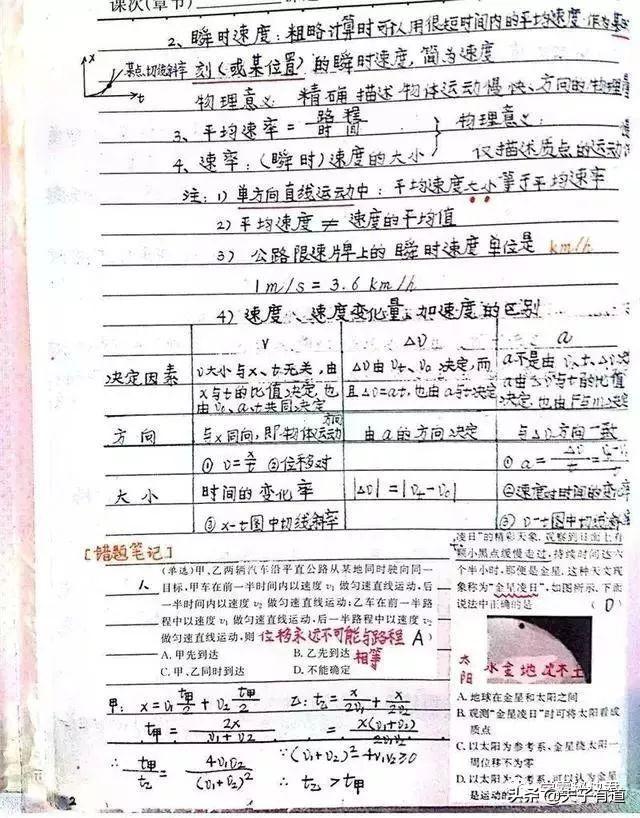 课次(章节)
2、瞬时速度：粗略计算时可认用很短时间内的平均速度
x 某点切线斜率 刻(或某位置)的瞬时速度,简为速度
t
物理意义 精确描述物体运动慢快、方向的物理量
3、平均速率 = 路程/时间 物理意义：
4、速率：(瞬时)速度的大小 仅描述质点的运动
注：1) 单方向直线运动中：平均速度大小等于平均速率
2) 平均速度 ≠ 速度的平均值
3) 公路限速牌上的瞬时速度单位是 km/h
1m/s = 3.6 km/h
4) 速度、速度变化量、加速度的区别
v Δv a
决定因素
v大小与x、t无关,由
x与t的比值决定,也
由v0、a、t共同决定
Δv由vt、v0决定,而
且Δv=at,也由a与t决定
a不是由v、t、Δv
a由Δv与t的比值
决定,也由F与m决定
方向
与x同向,即物体运动方向
由a的方向决定
与Δv方向一致
大小
① v=x/t ②位移对
时间的变化率
③x-t图中切线斜率
|Δv| = |vt-v0|
① a=Δv/t
②速度对时间的变化率
③v-t图中切线斜率
[错题笔记]
1、 (单选)甲、乙两辆汽车沿平直公路从某地同时驶向同一
目标,甲车在前一半时间内以速度 v1 做匀速直线运动,后
一半时间内以速度 v2 做匀速直线运动;乙车在前一半路
程中以速度 v1 做匀速直线运动,后一半路程中以速度 v2
做匀速直线运动,则 位移永远不可能与路程 ( A )
相等
A. 甲先到达 B. 乙先到达
C. 甲、乙同时到达 D. 不能确定
甲: x = v1 t甲/2 + v2 t甲/2 乙: t乙 = x/2v1 + x/2v2
t甲 = 2x/(v1+v2) = x(v1+v2)/2v1v2
∴ t甲/t乙 = 4v1v2/(v1+v2)² ∵(v1+v2)²-4v1v2≥0
∴ t乙 > t甲
凌日”的精彩天象,观察到日面上有
颗小黑点缓慢走过,持续时间达六
个半小时,那便是金星,这种天文现
象称为“金星凌日”,如图所示,下面
说法中正确的是 ( D )
太阳 水金地
A. 地球在金星和太阳之间
B. 观测“金星凌日”时可将太阳看成
质点
C. 以太阳为参考系,金星绕太阳一
周位移不为零
D. 以太阳为参考系,可以认为金星
是运动的
2
头条